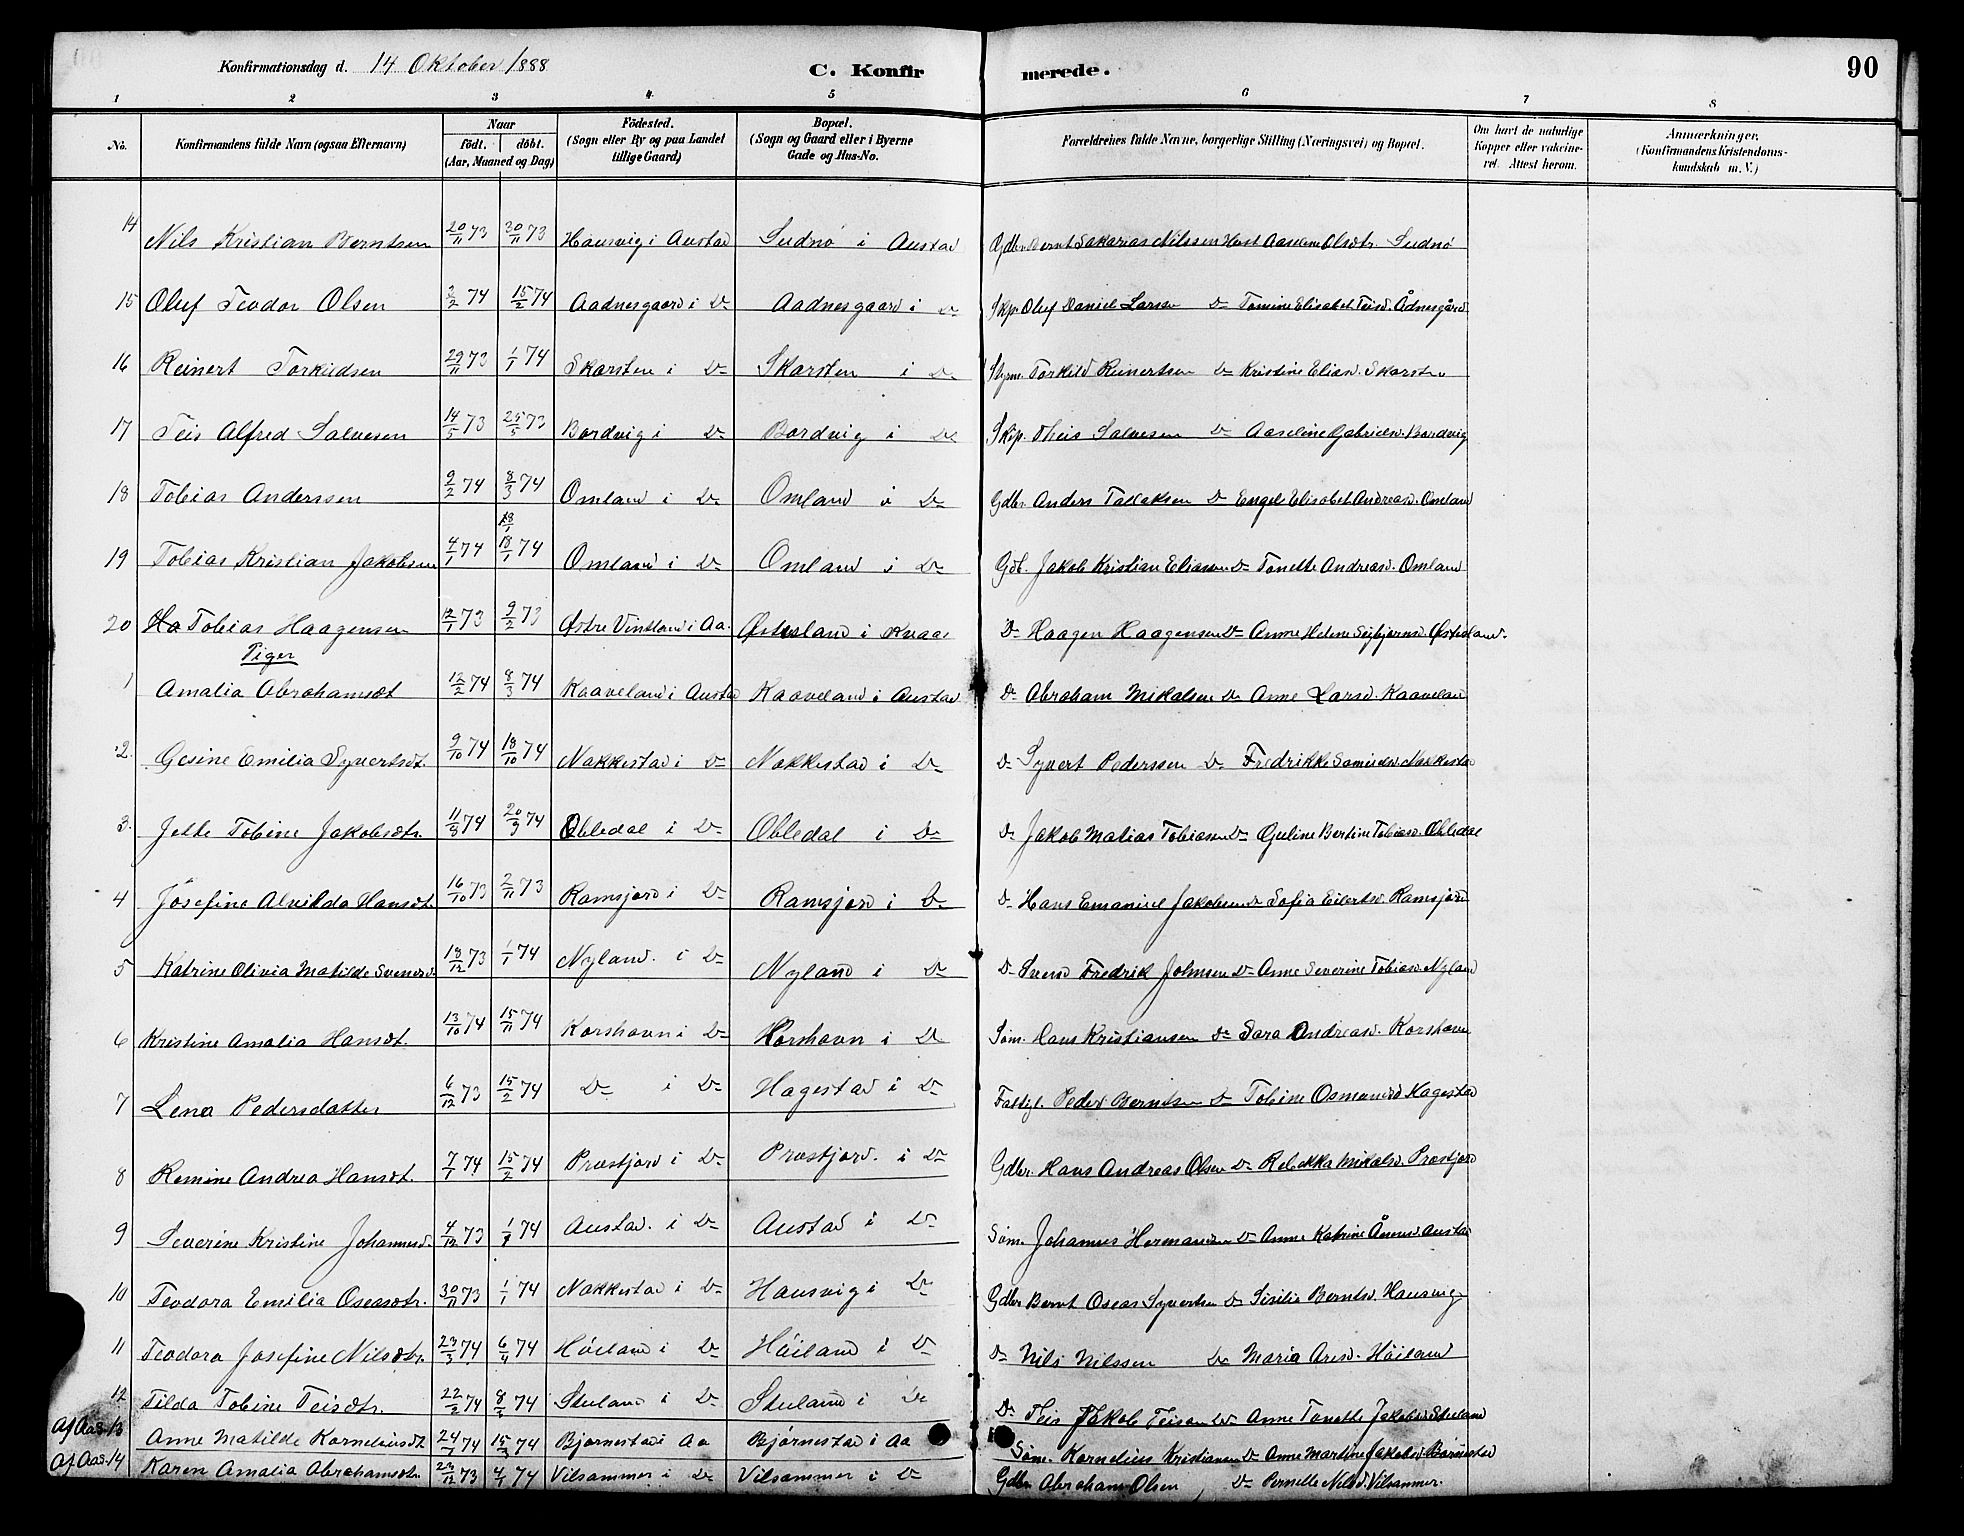 Konfirmationsdag d. 14 Oktober 1888 C. Konfirmerede. 90
1 2 3 4 5 6 7 8
No. Konfirmandens fulde Navn (ogsaa Efternavn) Naar født. døbt. (Aar, Maaned og Dag) Fødested. (Sogn eller By og paa Landet tillige Gaard) Bopæl. (Sogn og Gaard eller i Byerne Gade og Hus-No. Forældrenes fulde Navne, borgerlige Stilling (Næringsvei) og Bopæl. Om havt de naturlige Kopper eller vakcineret. Attest herom. Anmærkninger, (Konfirmandens Kristendomskundskab m. V.)
14 Nils Kristian Berntsen 20/11 73 30/11 73 Hausvig i Austad Sudnø i Austad Gdbr. Bernt Sakarias Nilssen Hust Aaseline Olsdtr. Sudnø
15 Oluf Teodor Olsen 2/2 74 15/2 74 Aadnesgaard i Do Aadnesgaard i Do Skp. Oluf Daniel Larsen Do Tomine Elisabet Teisd. Ådnesgård
16 Reinert Torkildsen 29/11 73 1/1 74 Skarsten i Do Skarsten i Do Styrm. Torkild Reinertsen Do Kristine Eliasd. Skarsten
17 Teis Alfred Salvesen 14/5 73 25/5 73 Bordvig i Do Bordvig i Do Skp. Theis Salvesen Do Aaseline Gabrielsd. Bordvig
18 Tobias Anderssen 9/2 74 8/3 74 Omland i Do Omland i Do Gdbr. Anders Tallaksen Do Engel Elisabet Andreasd. Omland
19 Tobias Kristian Jakobsen 4/1 74 18/1 74 Omland i Do Omland i Do Gdb. Jakob Kristian Eliassen Do Tonette Andreasd. Omland
20 Tobias Haagensen 12/1 73 9/2 73 Østre Vintland i Aa. Østesland i Kvaas Do Haagen Haagensen Do Anne Helene Seibjørnsd. Østesland.
Piger
1 Amalia Abrahamsdt 12/2 74 8/3 74 Kaaveland i Austad Kaaveland i Austad Do Abraham Mikalsen Do Anne Larsd. Kaavelan
2. Gesine Emilia Syvertsdt. 9/10 74 18/10 74 Nakkestad i Do Nakkestad i Do Do Syvert Pederssen Do Fredrikke Samuelsd. Nakkestad
3. Jette Tobine Jakobsdtr. 11/3 74 20/3 74 Obledal i Do Obledal i Do Do Jakob Matias Tobiassen Do Guline Bertine Tobiasd. Obledal
4 Josefine Alvilda Hansdt. 16/10 73 2/11 73 Ramsjord i Do Ramsjord i Do Do Hans Emanuel Jakobsen Do Sofia Eilertsd. Ramsjord
5 Katrine Olivia Matilde Svendsd. 18/12 73 1/1 74 Nyland. i Do Nyland i Do Do Svend Fredrik Johnsen Do Anne Severine Tobiasd. Nyland
6 Kristine Amalia Hansdt. 13/10 74 15/11 74 Korshavn i Do Korshavn i Do Søm. Hans Kristiansen Do Sara Andreasd. Korshavn
7 Lena Pedersdatter 6/12 73 15/2 74 Do i Do Hagestad i Do Fattigl. Peder Berntsen Do Tobine Osmundsd Hagestad
8 Remine Andrea Hansdt. 7/1 74 15/2 74 Præstjord i Do Præstjord. i Do Gdbr. Hans Andreas Olsen Do Rebekka Mikalsd. Præstjord
9 Severine Kristine Johannesd. 4/12 73 1/1 74 Austad. i Do Austad i Do Søm. Johannes Hermansen Do Anne Katrine Ånensd. Austad
10 Teodora Emilia Oseasdtr. 30/11 73 1/1 74 Nakkestad i Do Hausvig i Do Gdbr. Bernt Oseas Syvertsen Do Sisilia Berntsd. Hausvig
11 Teodora Josefine Nilsdtr. 23/3 74 6/4 74 Høiland i Do Høiland i Do Do Nils Nilssen Do Maria Aresd. Høiland
12 Tilda Tobine Teisdtr. 22/2 74 8/3 74 Stuland i Do Stuland i Do Do Teis Jakob Teisen Do Anne Tonette Jakobsd. Stuland
Af Aas. 13 Anne Matilde Korneliusdt 24/1 74 15/3 74 Bjørnestad i Aa Bjørnestad i Aa Søm. Kornelius Kristiansen Do Anne Martine Jakobsd Børnestad
Af Aas. 14 Karen Amalia Abrahamsdtr. 29/12 73 4/1 74 Vilsammer i Do Vilsammer i Do Gdbr Abraham Olsen Do Pernelle Nilsd. Vilsammer.